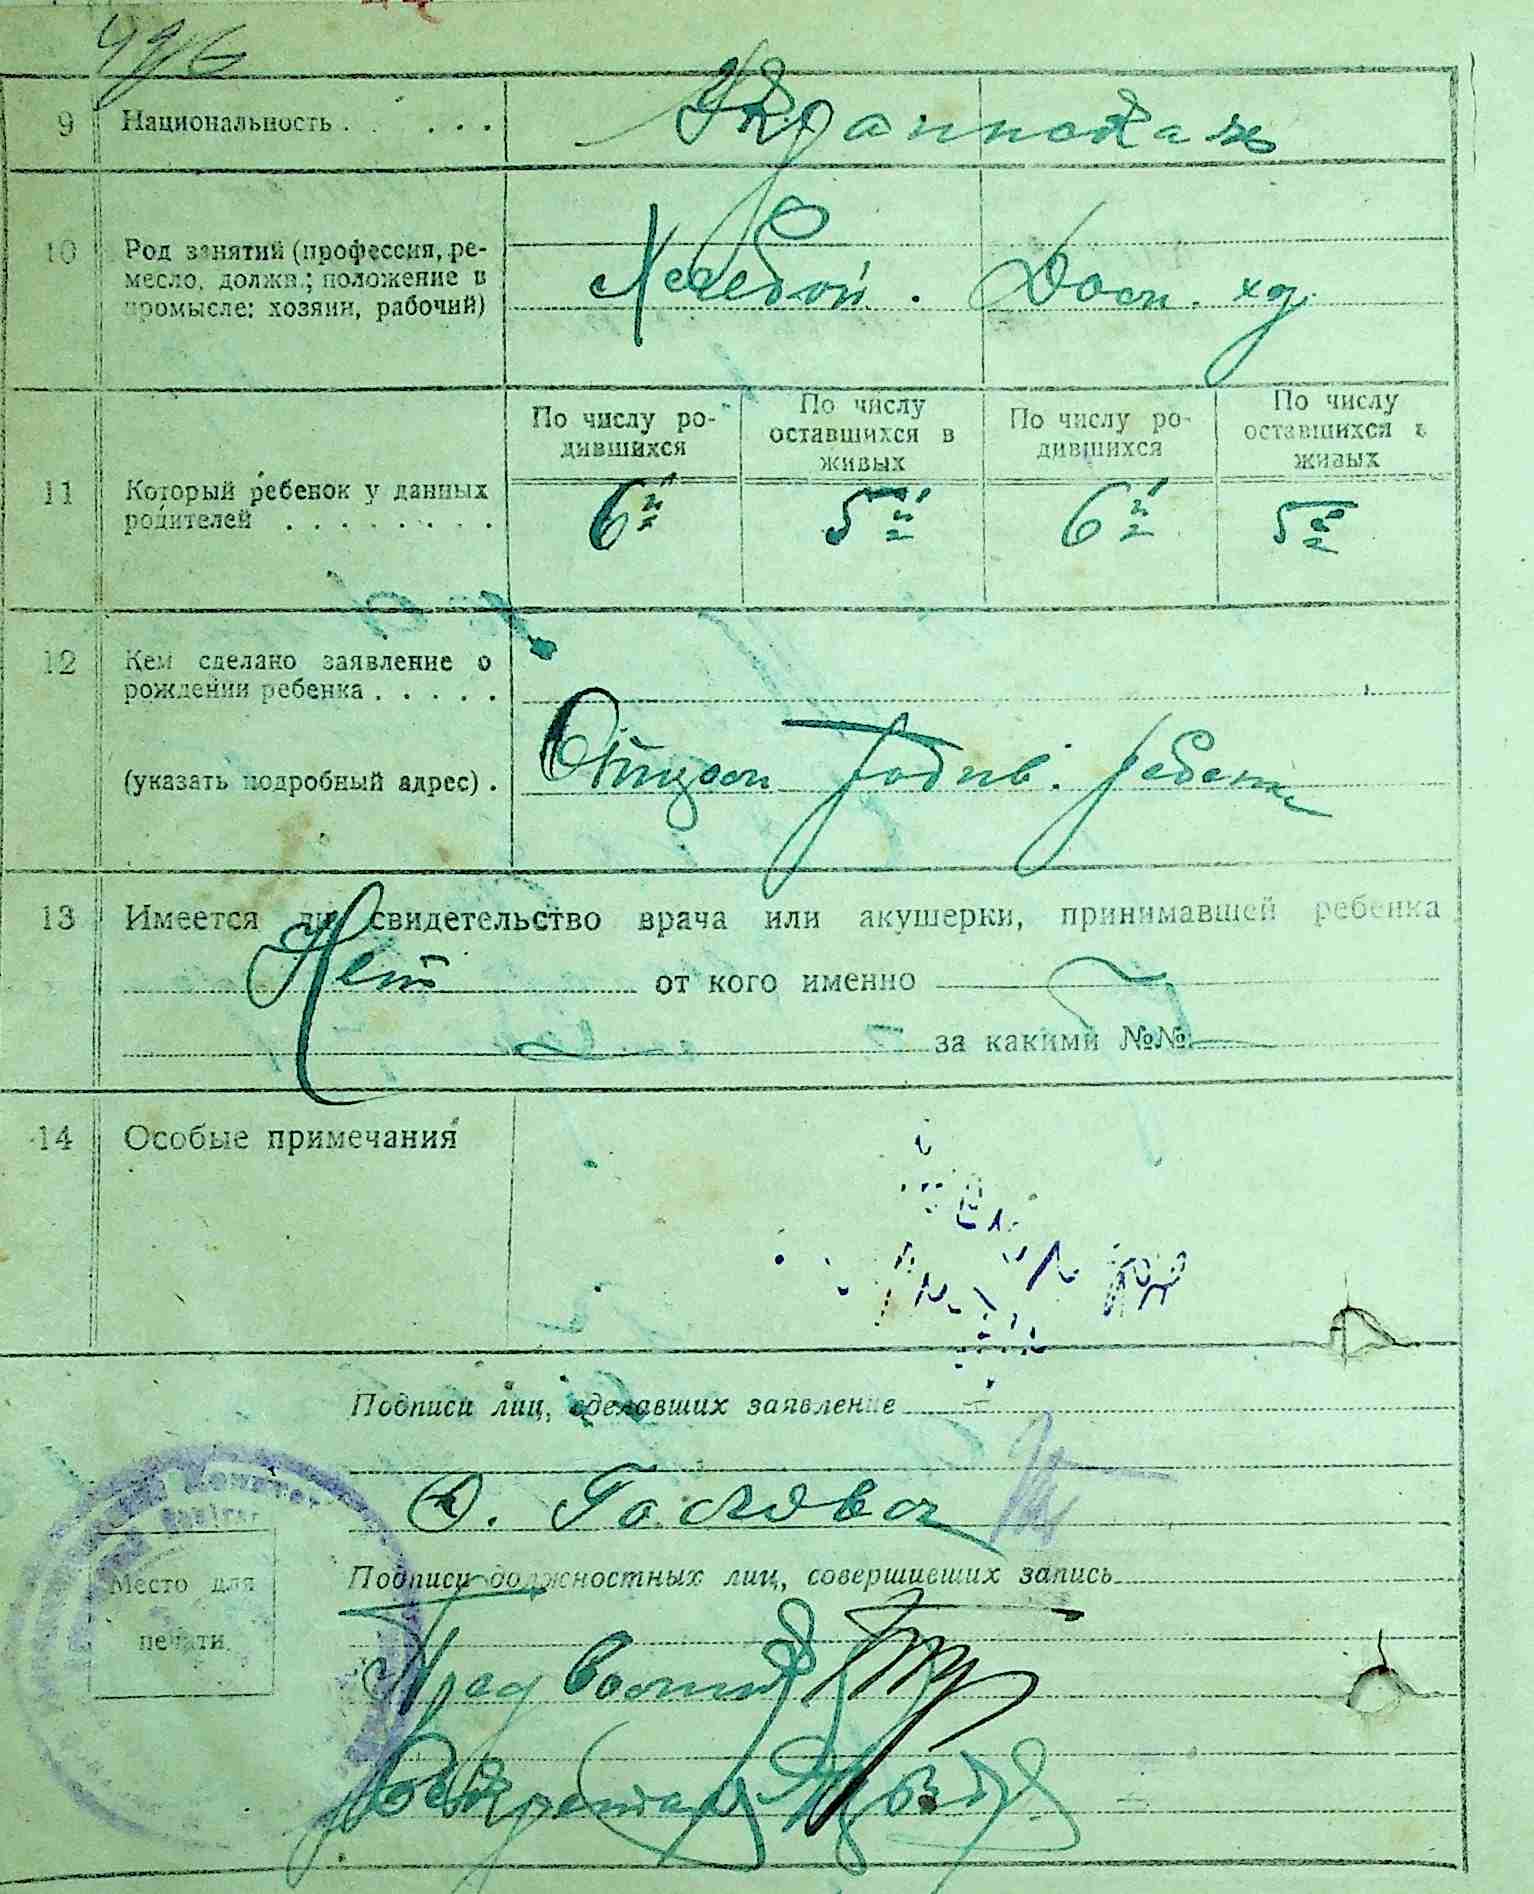 496
9 Национальность . . . . . Украинская
10 Род занятий (профессия, ре-
месло, должн.; положение в
промысле: хозяин, рабочий)
Хлебоп. Дом. хоз.
По числу ро-
дившихся
По числу
оставшихся в
живых
По числу ро-
дившихся
По числу
оставшихся в
живых
11 Который ребенок у данных
родителей . . . . . . . .
6й 5й 6й 5й
12 Кем сделано заявление о
рождении ребенка . . . . .
(указать подробный адрес) .
Отцом родив. ребенка
13 Имеется ли свидетельство врача или акушерки, принимавшей ребенка
Нет от кого именно
за какими №№
14 Особые примечания
Подписи лиц, сделавших заявление
Головач
Подписи должностных лиц, совершивших запись
Место для
печати
Пред
Секретарь